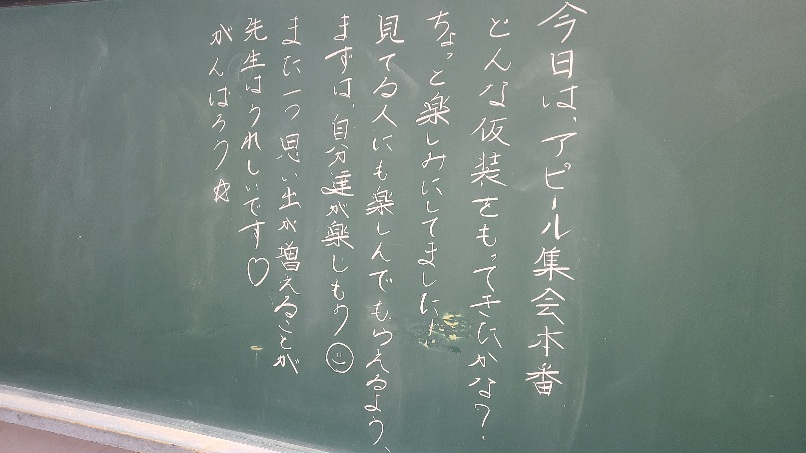 今日は、アピール集会本番
どんな仮装をもってきたかな?
ちょっと楽しみにしてました
見てる人にも楽しんでもらえるよう、
まずは、自分達が楽しもう☺
また一つ思い出が増えることが
先生はうれしいです♡
がんばろう☆